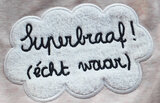 Superbraaf!
(écht waar)